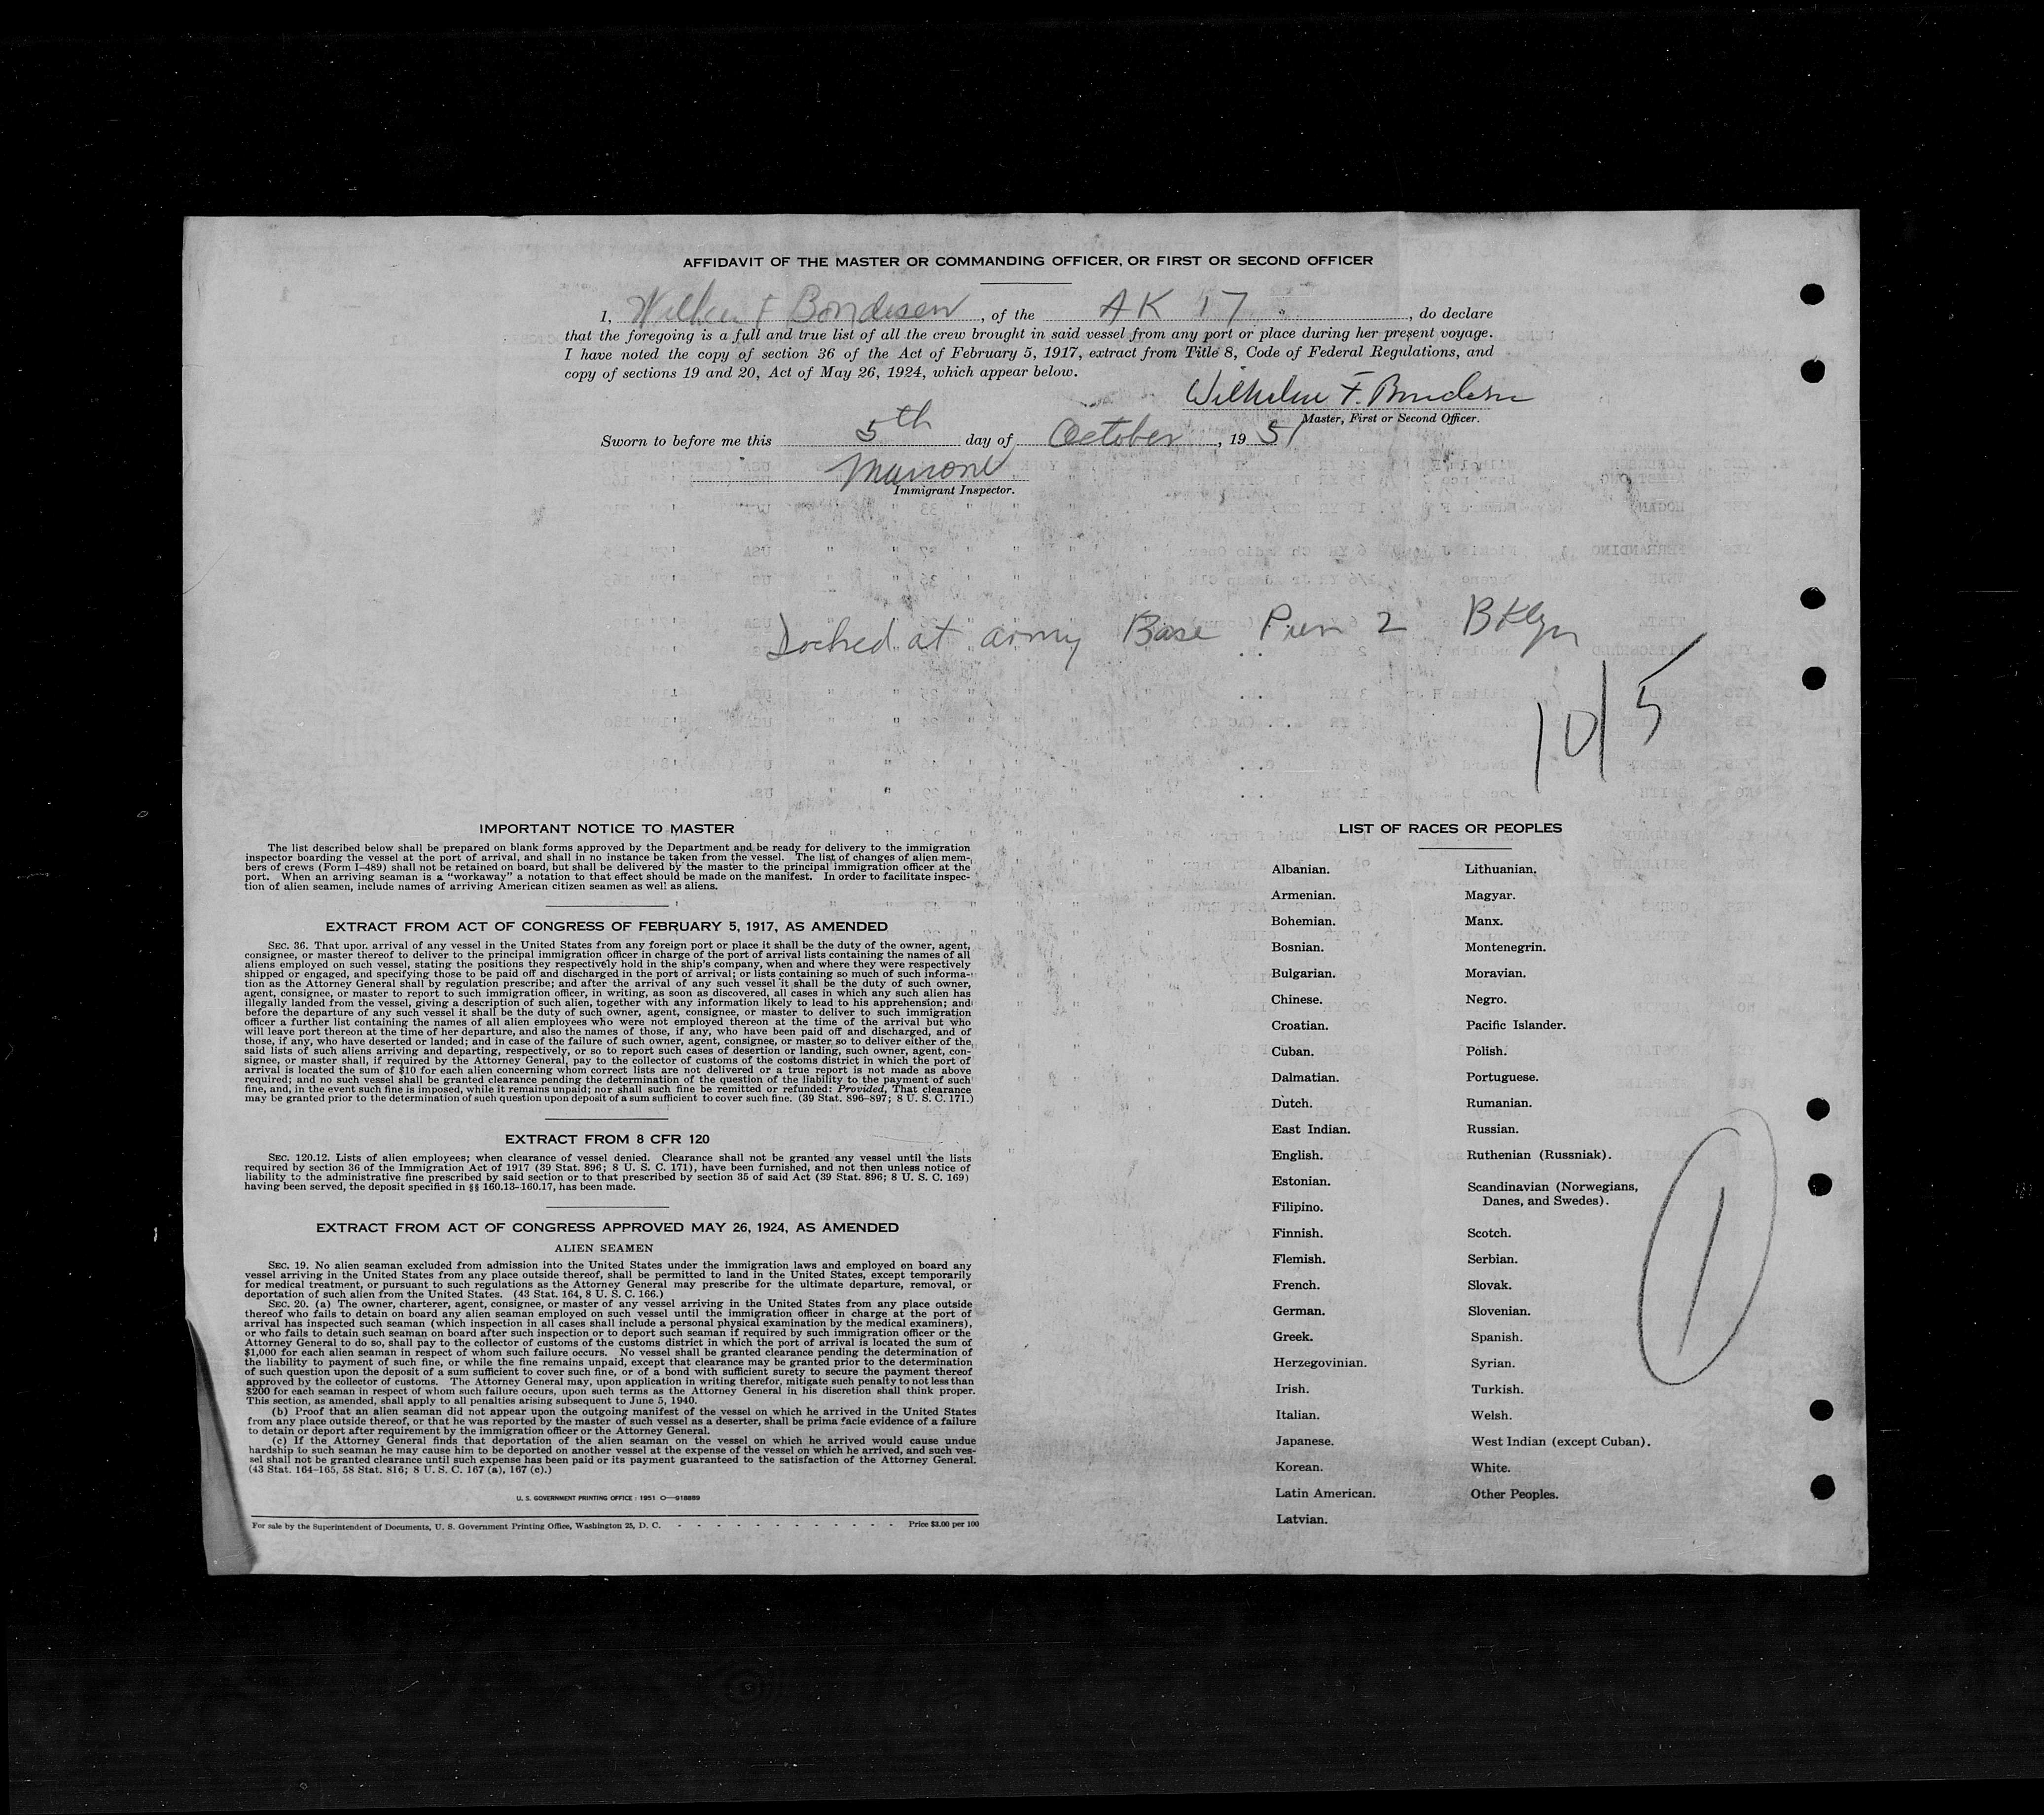 AFFIDAVIT OF THE MASTER OR COMMANDING OFFICER, OR FIRST OR SECOND OFFICER
I, F Bondesen, of the AK 17, do declare
that the foregoing is a full and true list of all the crew brought in said vessel from any port or place during her present voyage.
I have noted the copy of section 36 of the Act of February 5, 1917, extract from Title 8, Code of Federal Regulations, and
copy of sections 19 and 20, Act of May 26, 1924, which appear below.
Wilhelm F. Bondesen
Master, First or Second Officer.
Sworn to before me this 5th day of October, 1951
Immigrant Inspector.
Docked at army Base Pier 2 Bklyn
10/5
IMPORTANT NOTICE TO MASTER
The list described below shall be prepared on blank forms approved by the Department and be ready for delivery to the immigration
inspector boarding the vessel at the port of arrival, and shall in no instance be taken from the vessel. The list of changes of alien mem-
bers of crews (Form I-489) shall not be retained on board, but shall be delivered by the master to the principal immigration officer at the
port. When an arriving seaman is a "workaway" a notation to that effect should be made on the manifest. In order to facilitate inspec-
tion of alien seamen, include names of arriving American citizen seamen as well as aliens.
EXTRACT FROM ACT OF CONGRESS OF FEBRUARY 5, 1917, AS AMENDED
SEC. 36. That upon arrival of any vessel in the United States from any foreign port or place it shall be the duty of the owner, agent,
consignee, or master thereof to deliver to the principal immigration officer in charge of the port of arrival lists containing the names of all
aliens employed on such vessel, stating the positions they respectively hold in the ship's company, when and where they were respectively
shipped or engaged, and specifying those to be paid off and discharged in the port of arrival; or lists containing so much of such informa-
tion as the Attorney General shall by regulation prescribe; and after the arrival of any such vessel it shall be the duty of such owner,
agent, consignee, or master to report to such immigration officer, in writing, as soon as discovered, all cases in which any such alien has
illegally landed from the vessel, giving a description of such alien, together with any information likely to lead to his apprehension; and
before the departure of any such vessel it shall be the duty of such owner, agent, consignee, or master to deliver to such immigration
officer a further list containing the names of all alien employees who were not employed thereon at the time of the arrival but who
will leave port thereon at the time of her departure, and also the names of those, if any, who have been paid off and discharged, and of
those, if any, who have deserted or landed; and in case of the failure of such owner, agent, consignee, or master so to deliver either of the
said lists of such aliens arriving and departing, respectively, or so to report such cases of desertion or landing, such owner, agent, con-
signee, or master shall, if required by the Attorney General, pay to the collector of customs of the customs district in which the port of
arrival is located the sum of $10 for each alien concerning whom correct lists are not delivered or a true report is not made as above
required; and no such vessel shall be granted clearance pending the determination of the question of the liability to the payment of such
fine, and, in the event such fine is imposed, while it remains unpaid; nor shall such fine be remitted or refunded: Provided, That clearance
may be granted prior to the determination of such question upon deposit of a sum sufficient to cover such fine. (39 Stat. 896-897; 8 U. S. C. 171.)
EXTRACT FROM 8 CFR 120
SEC. 120.12. Lists of alien employees; when clearance of vessel denied. Clearance shall not be granted any vessel until the lists
required by section 36 of the Immigration Act of 1917 (39 Stat. 896; 8 U. S. C. 171), have been furnished, and not then unless notice of
liability to the administrative fine prescribed by said section or to that prescribed by section 35 of said Act (39 Stat. 896; 8 U. S. C. 169)
having been served, the deposit specified in §§ 160.13-160.17, has been made.
EXTRACT FROM ACT OF CONGRESS APPROVED MAY 26, 1924, AS AMENDED
ALIEN SEAMEN
SEC. 19. No alien seaman excluded from admission into the United States under the immigration laws and employed on board any
vessel arriving in the United States from any place outside thereof, shall be permitted to land in the United States, except temporarily
for medical treatment, or pursuant to such regulations as the Attorney General may prescribe for the ultimate departure, removal, or
deportation of such alien from the United States. (43 Stat. 164, 8 U. S. C. 166.)
SEC. 20. (a) The owner, charterer, agent, consignee, or master of any vessel arriving in the United States from any place outside
thereof who fails to detain on board any alien seaman employed on such vessel until the immigration officer in charge at the port of
arrival has inspected such seaman (which inspection in all cases shall include a personal physical examination by the medical examiners),
or who fails to detain such seaman on board after such inspection or to deport such seaman if required by such immigration officer or the
Attorney General to do so, shall pay to the collector of customs of the customs district in which the port of arrival is located the sum of
$1,000 for each alien seaman in respect of whom such failure occurs. No vessel shall be granted clearance pending the determination of
the liability to payment of such fine, or while the fine remains unpaid, except that clearance may be granted prior to the determination
of such question upon the deposit of a sum sufficient to cover such fine, or of a bond with sufficient surety to secure the payment thereof
approved by the collector of customs. The Attorney General may, upon application in writing therefor, mitigate such penalty to not less than
$200 for each seaman in respect of whom such failure occurs, upon such terms as the Attorney General in his discretion shall think proper.
This section, as amended, shall apply to all penalties arising subsequent to June 5, 1940.
(b) Proof that an alien seaman did not appear upon the outgoing manifest of the vessel on which he arrived in the United States
from any place outside thereof, or that he was reported by the master of such vessel as a deserter, shall be prima facie evidence of a failure
to detain or deport after requirement by the immigration officer or the Attorney General.
(c) If the Attorney General finds that deportation of the alien seaman on the vessel on which he arrived would cause undue
hardship to such seaman he may cause him to be deported on another vessel at the expense of the vessel on which he arrived, and such ves-
sel shall not be granted clearance until such expense has been paid or its payment guaranteed to the satisfaction of the Attorney General.
(43 Stat. 164-165, 58 Stat. 816; 8 U. S. C. 167 (a), 167 (c).)
U. S. GOVERNMENT PRINTING OFFICE : 1951 O—918889
For sale by the Superintendent of Documents, U. S. Government Printing Office, Washington 25, D. C. - - - - - - - - - - - - Price $3.00 per 100
LIST OF RACES OR PEOPLES
Albanian.
Armenian.
Bohemian.
Bosnian.
Bulgarian.
Chinese.
Croatian.
Cuban.
Dalmatian.
Dutch.
East Indian.
English.
Estonian.
Filipino.
Finnish.
Flemish.
French.
German.
Greek.
Herzegovinian.
Irish.
Italian.
Japanese.
Korean.
Latin American.
Latvian.
Lithuanian.
Magyar.
Manx.
Montenegrin.
Moravian.
Negro.
Pacific Islander.
Polish.
Portuguese.
Rumanian.
Russian.
Ruthenian (Russniak).
Scandinavian (Norwegians,
Danes, and Swedes).
Scotch.
Serbian.
Slovak.
Slovenian.
Spanish.
Syrian.
Turkish.
Welsh.
West Indian (except Cuban).
White.
Other Peoples.
1